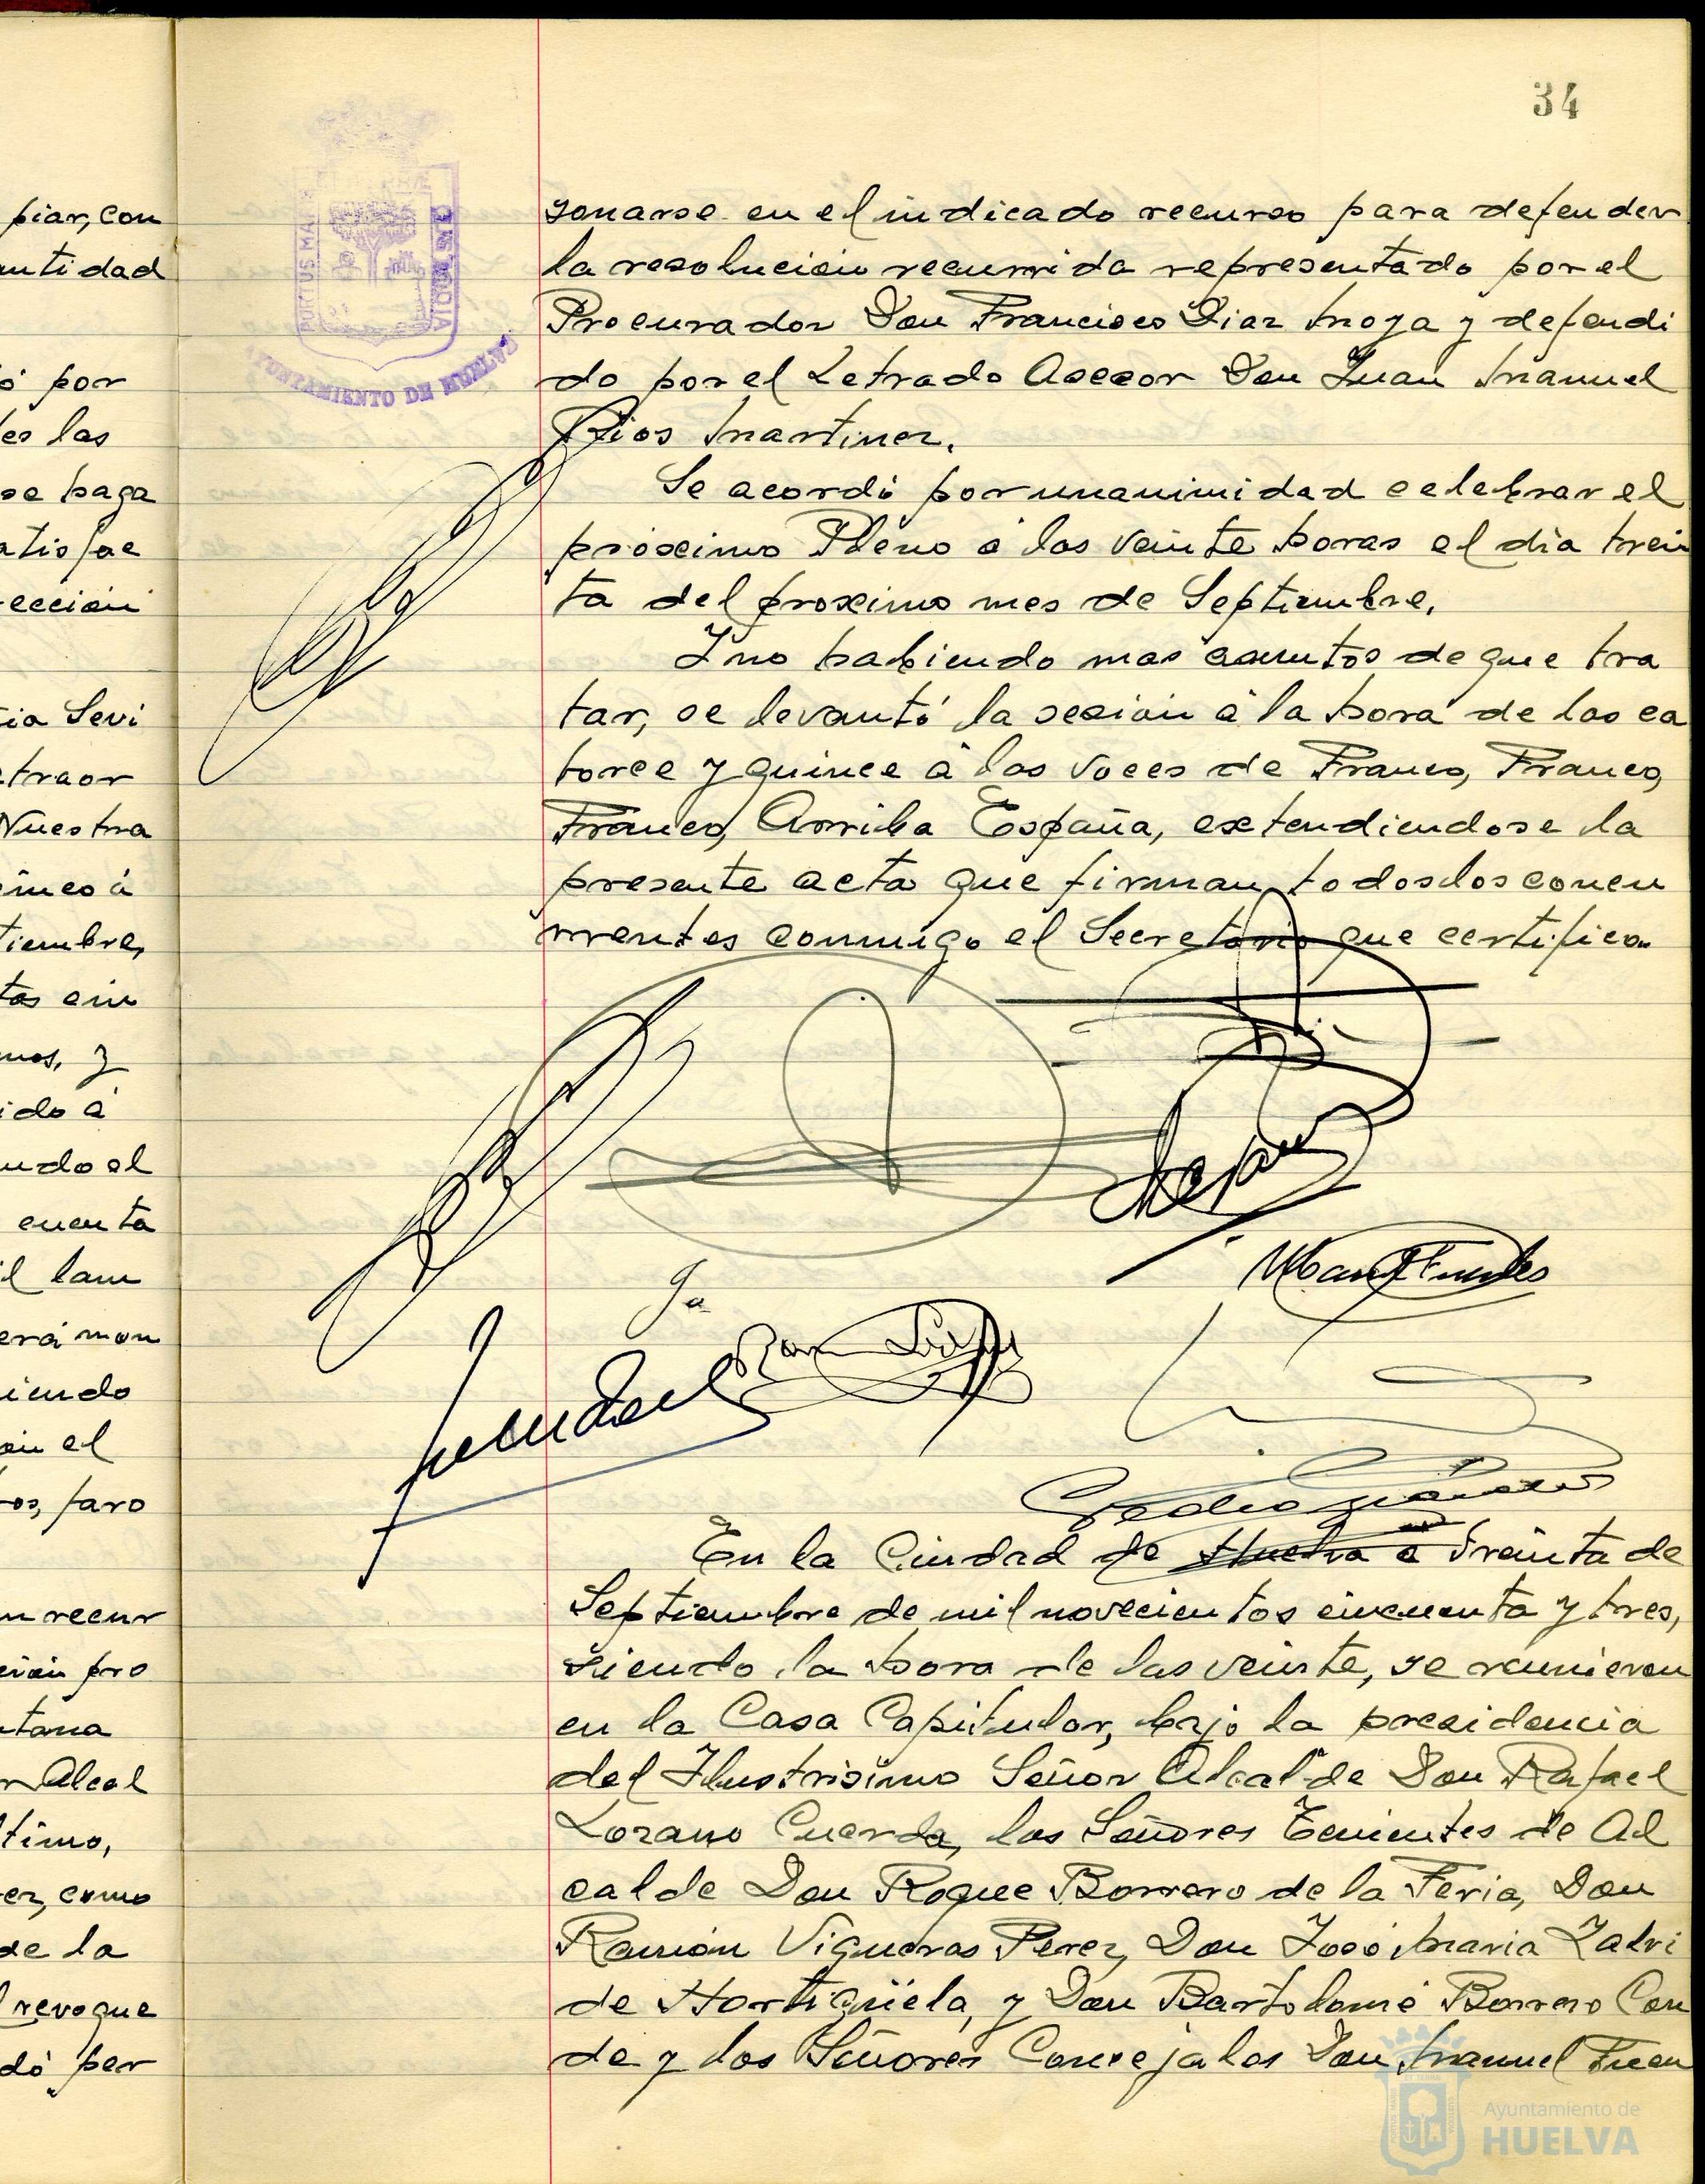 34
PORTUS MARIS
CUSTODIA
AYUNTAMIENTO DE HUELVA
piar, con
antidad
ó por
es las
se haga
atisfac
ección
ia Sevi
traor
Nuestra
inco á
tiembre,
tas cin
mos, y
ido á
ndo el
cuenta
il lam
erá mon
iendo
en el
os, faro
n recur
ción pro
tana
r Alcal
timo,
ez, como
de la
revoque
dó per
sonarse en el indicado recurso para defender
la resolución recurrida representado por el
Procurador Don Francisco Diaz Moya y defendi
do por el Letrado Asesor Don Juan Manuel
Rios Martinez.
Se acordó por unanimidad celebrar el
próximo Pleno á las veinte horas el dia trein
ta del proximo mes de Septiembre.
Y no habiendo mas asuntos de que tra
tar, se levantó la sesión á la hora de las ca
torce y quince á las voces de Franco, Franco,
Franco, Arriba España, extendiendose la
presente acta que firman todos los concu
rrentes conmigo el Secretario que certifico.
En la Ciudad de Huelva a treinta de
Septiembre de mil novecientos cincuenta y tres,
siendo la hora de las veinte, se reunieron
en la Casa Capitular, bajo la presidencia
del Ilustrisimo Señor Alcalde Don Rafael
Lozano Cuerda, los Señores Tenientes de Al
calde Don Roque Borrero de la Feria, Don
Ramón Vigueras Perez, Don José Maria Zalvi
de Hortigüela, y Don Bartolomé Borrero Con
de y los Señores Concejales Don Manuel Fuen
Ayuntamiento de
HUELVA